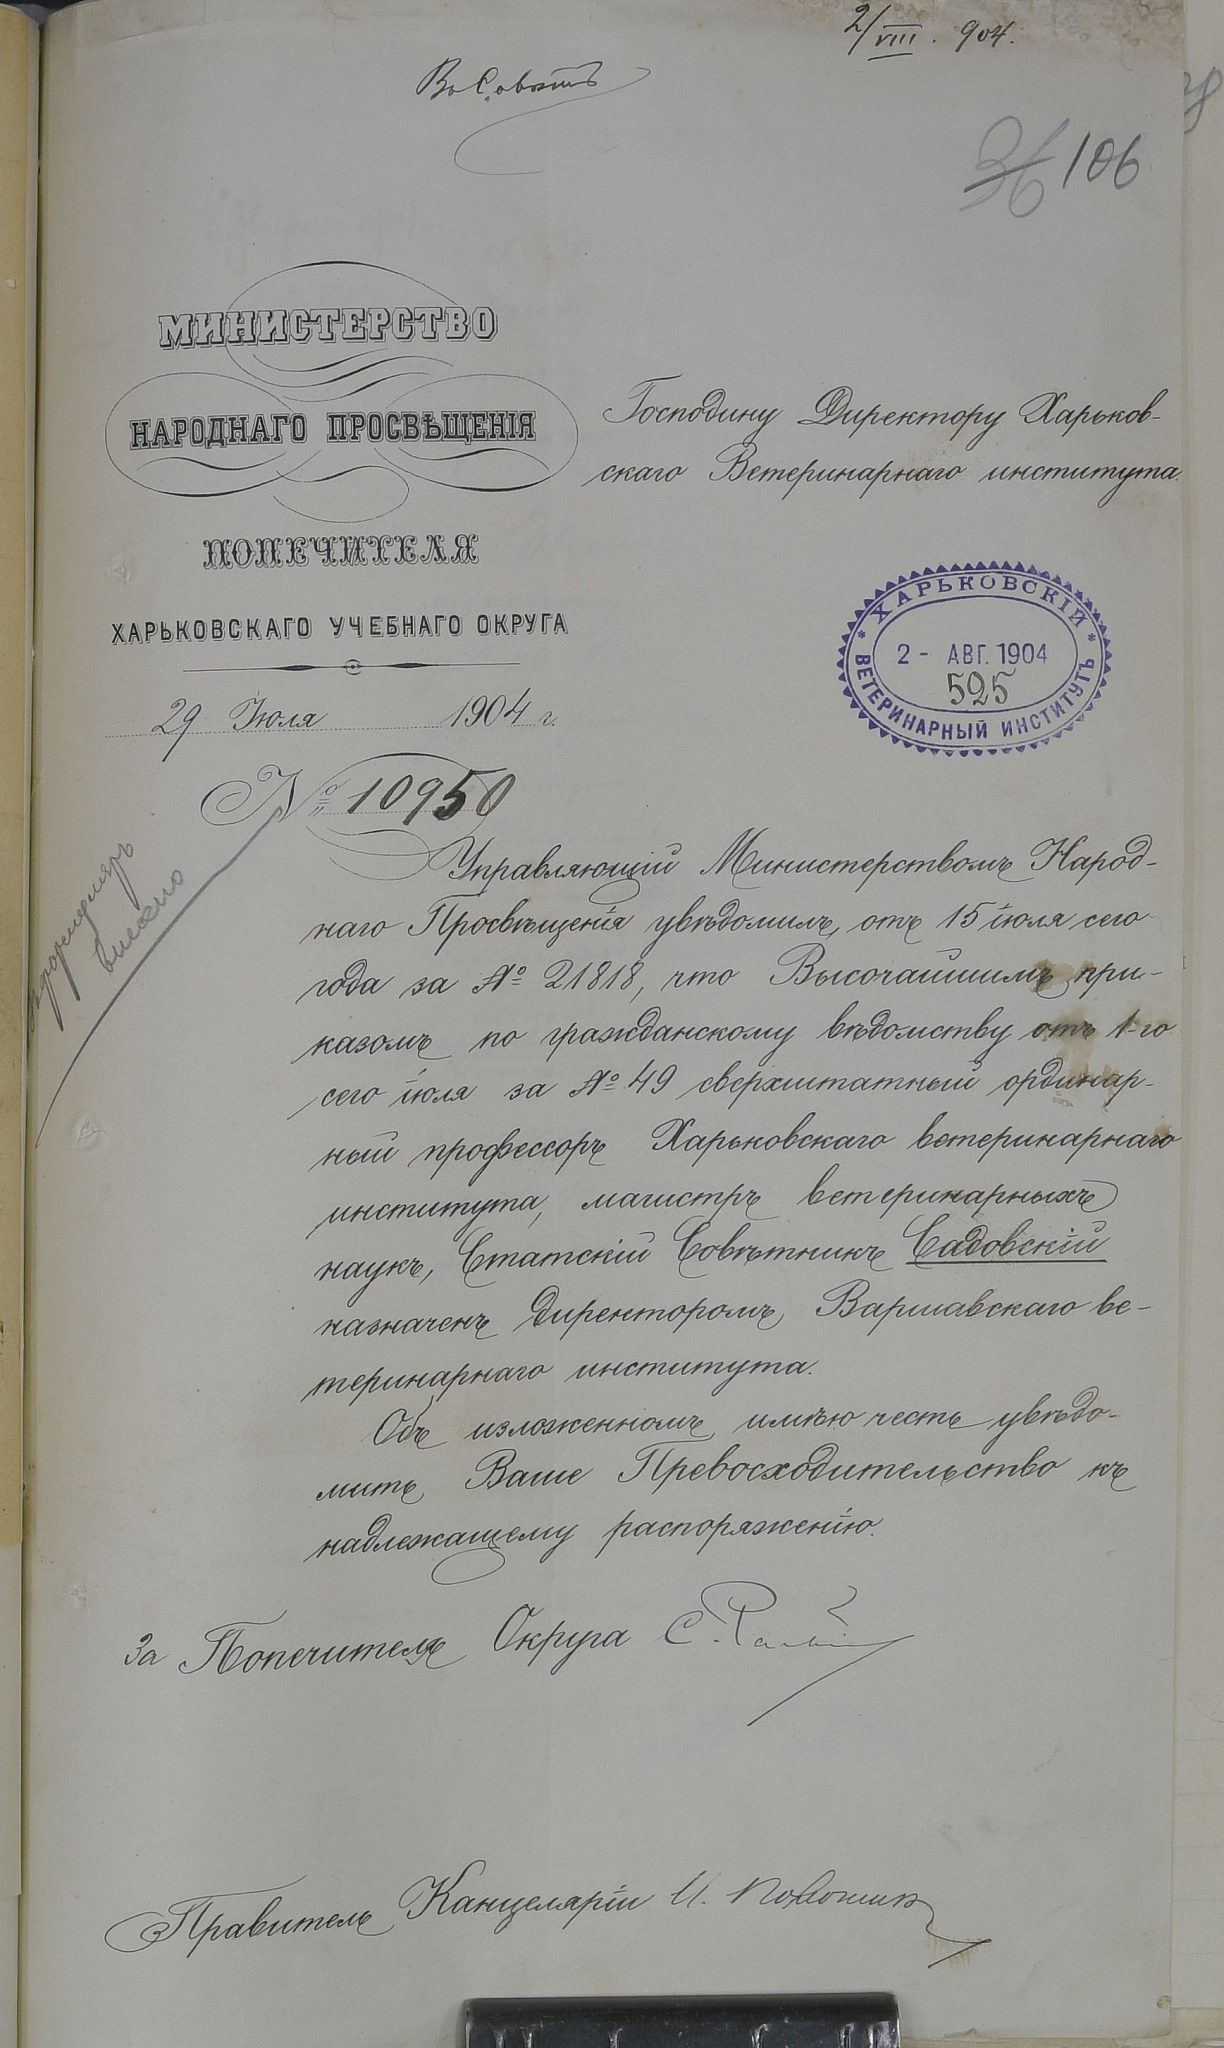 2/VIII. 904.
Въ Совѣтъ
36 106
МИНИСТЕРСТВО
НАРОДНАГО ПРОСВѢЩЕНІЯ
ПОПЕЧИТЕЛЯ
ХАРЬКОВСКАГО УЧЕБНАГО ОКРУГА
29 Іюля 1904 г.
№ 10950
Господину Директору Харьков-
скаго Ветеринарнаго института.
ХАРЬКОВСКІЙ
2 - АВГ. 1904
525
ВЕТЕРИНАРНЫЙ ИНСТИТУТЪ
Управляющій Министерствомъ Народ-
наго Просвѣщенія увѣдомилъ, отъ 15 іюля сего
года за № 21818, что Высочайшимъ при-
казомъ по гражданскому вѣдомству отъ 1-го
сего іюля за № 49 сверхштатный ординар-
ный профессоръ Харьковскаго ветеринарнаго
института, магистръ ветеринарныхъ
наукъ, Статскій Совѣтникъ Садовскій
назначенъ директоромъ Варшавскаго ве-
теринарнаго института.
Объ изложенномъ имѣю честь увѣдо-
мить Ваше Превосходительство къ
надлежащему распоряженію.
За Попечителя Округа С.
Правитель Канцеляріи И.